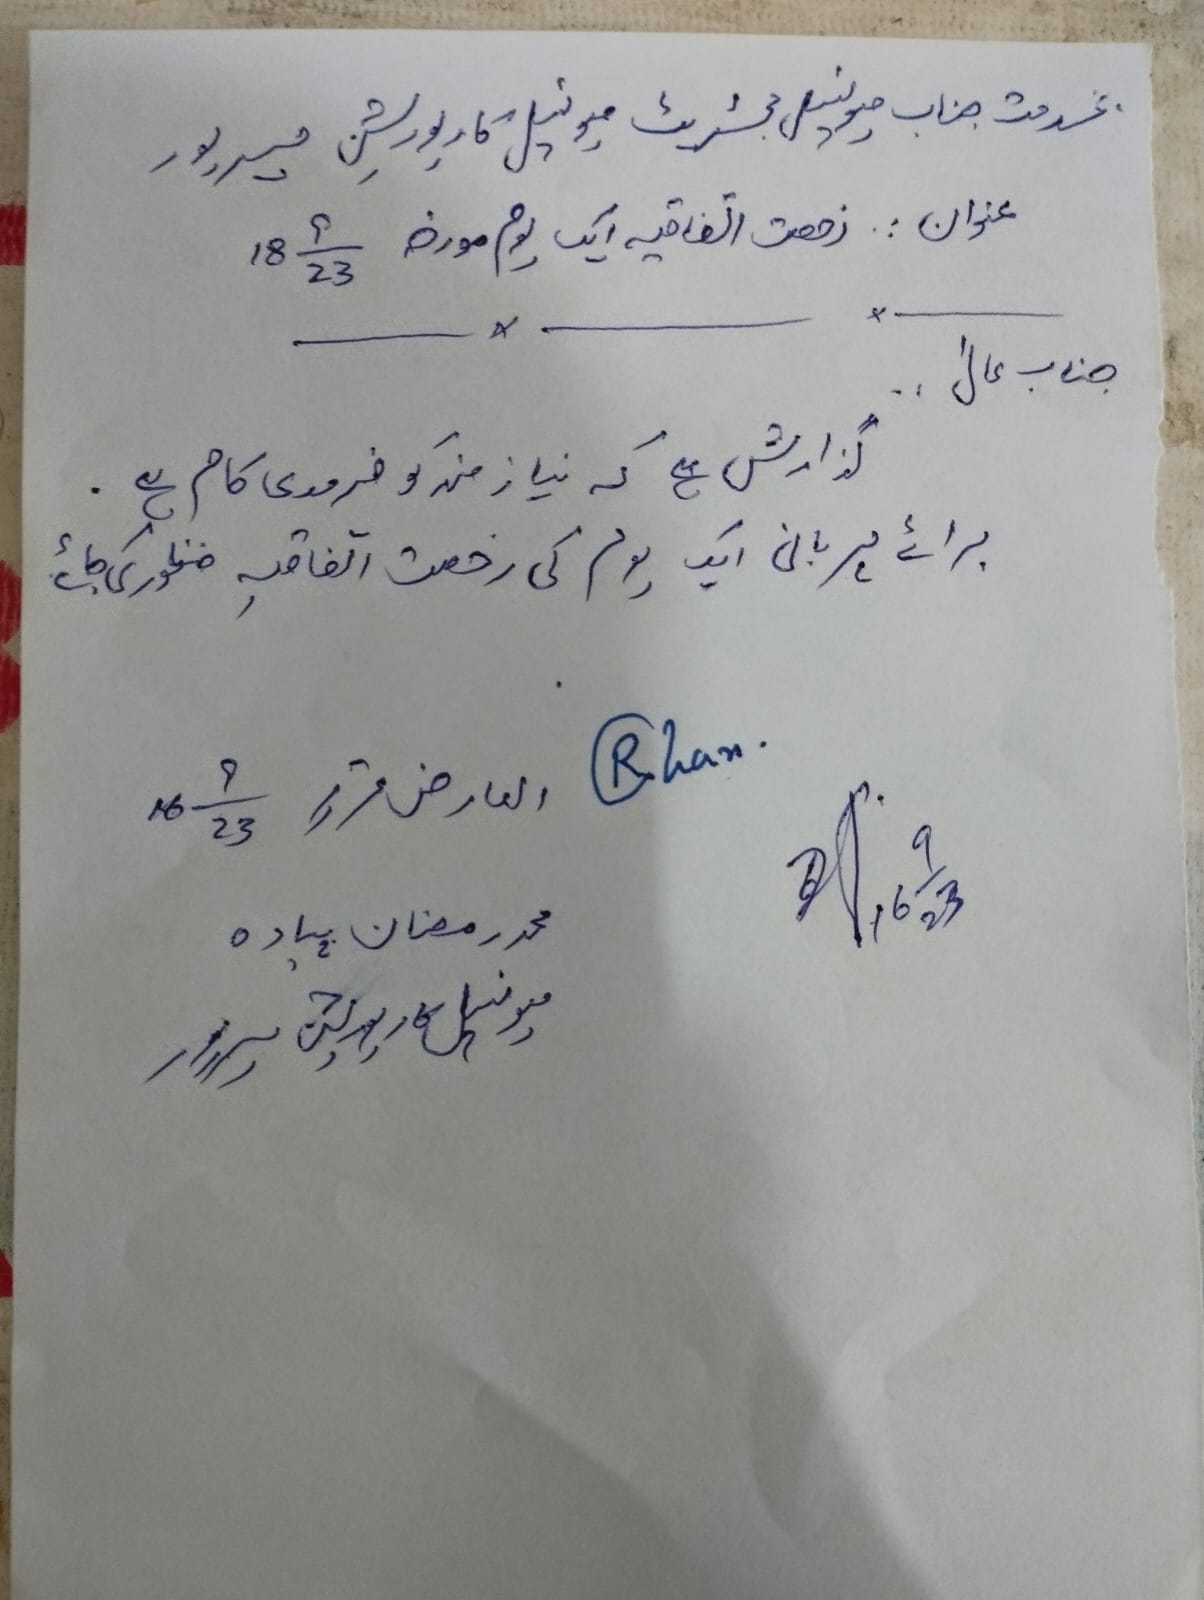 بخدمت جناب میونسپل مجسٹریٹ میونسپل کارپوریشن میرپور
عنوان :. رخصت اتفاقیہ ایک یوم مورخہ 18 9/23
جناب عالی ..
گذارش ہے کہ نیاز مند کو ضروری کام ہے .
برائے مہربانی ایک یوم کی رخصت اتفاقیہ منظور کی جائے
Rihan.
العارض 16 9/23
16 9/23
محمد رمضان پیادہ
میونسپل کارپوریشن میرپور